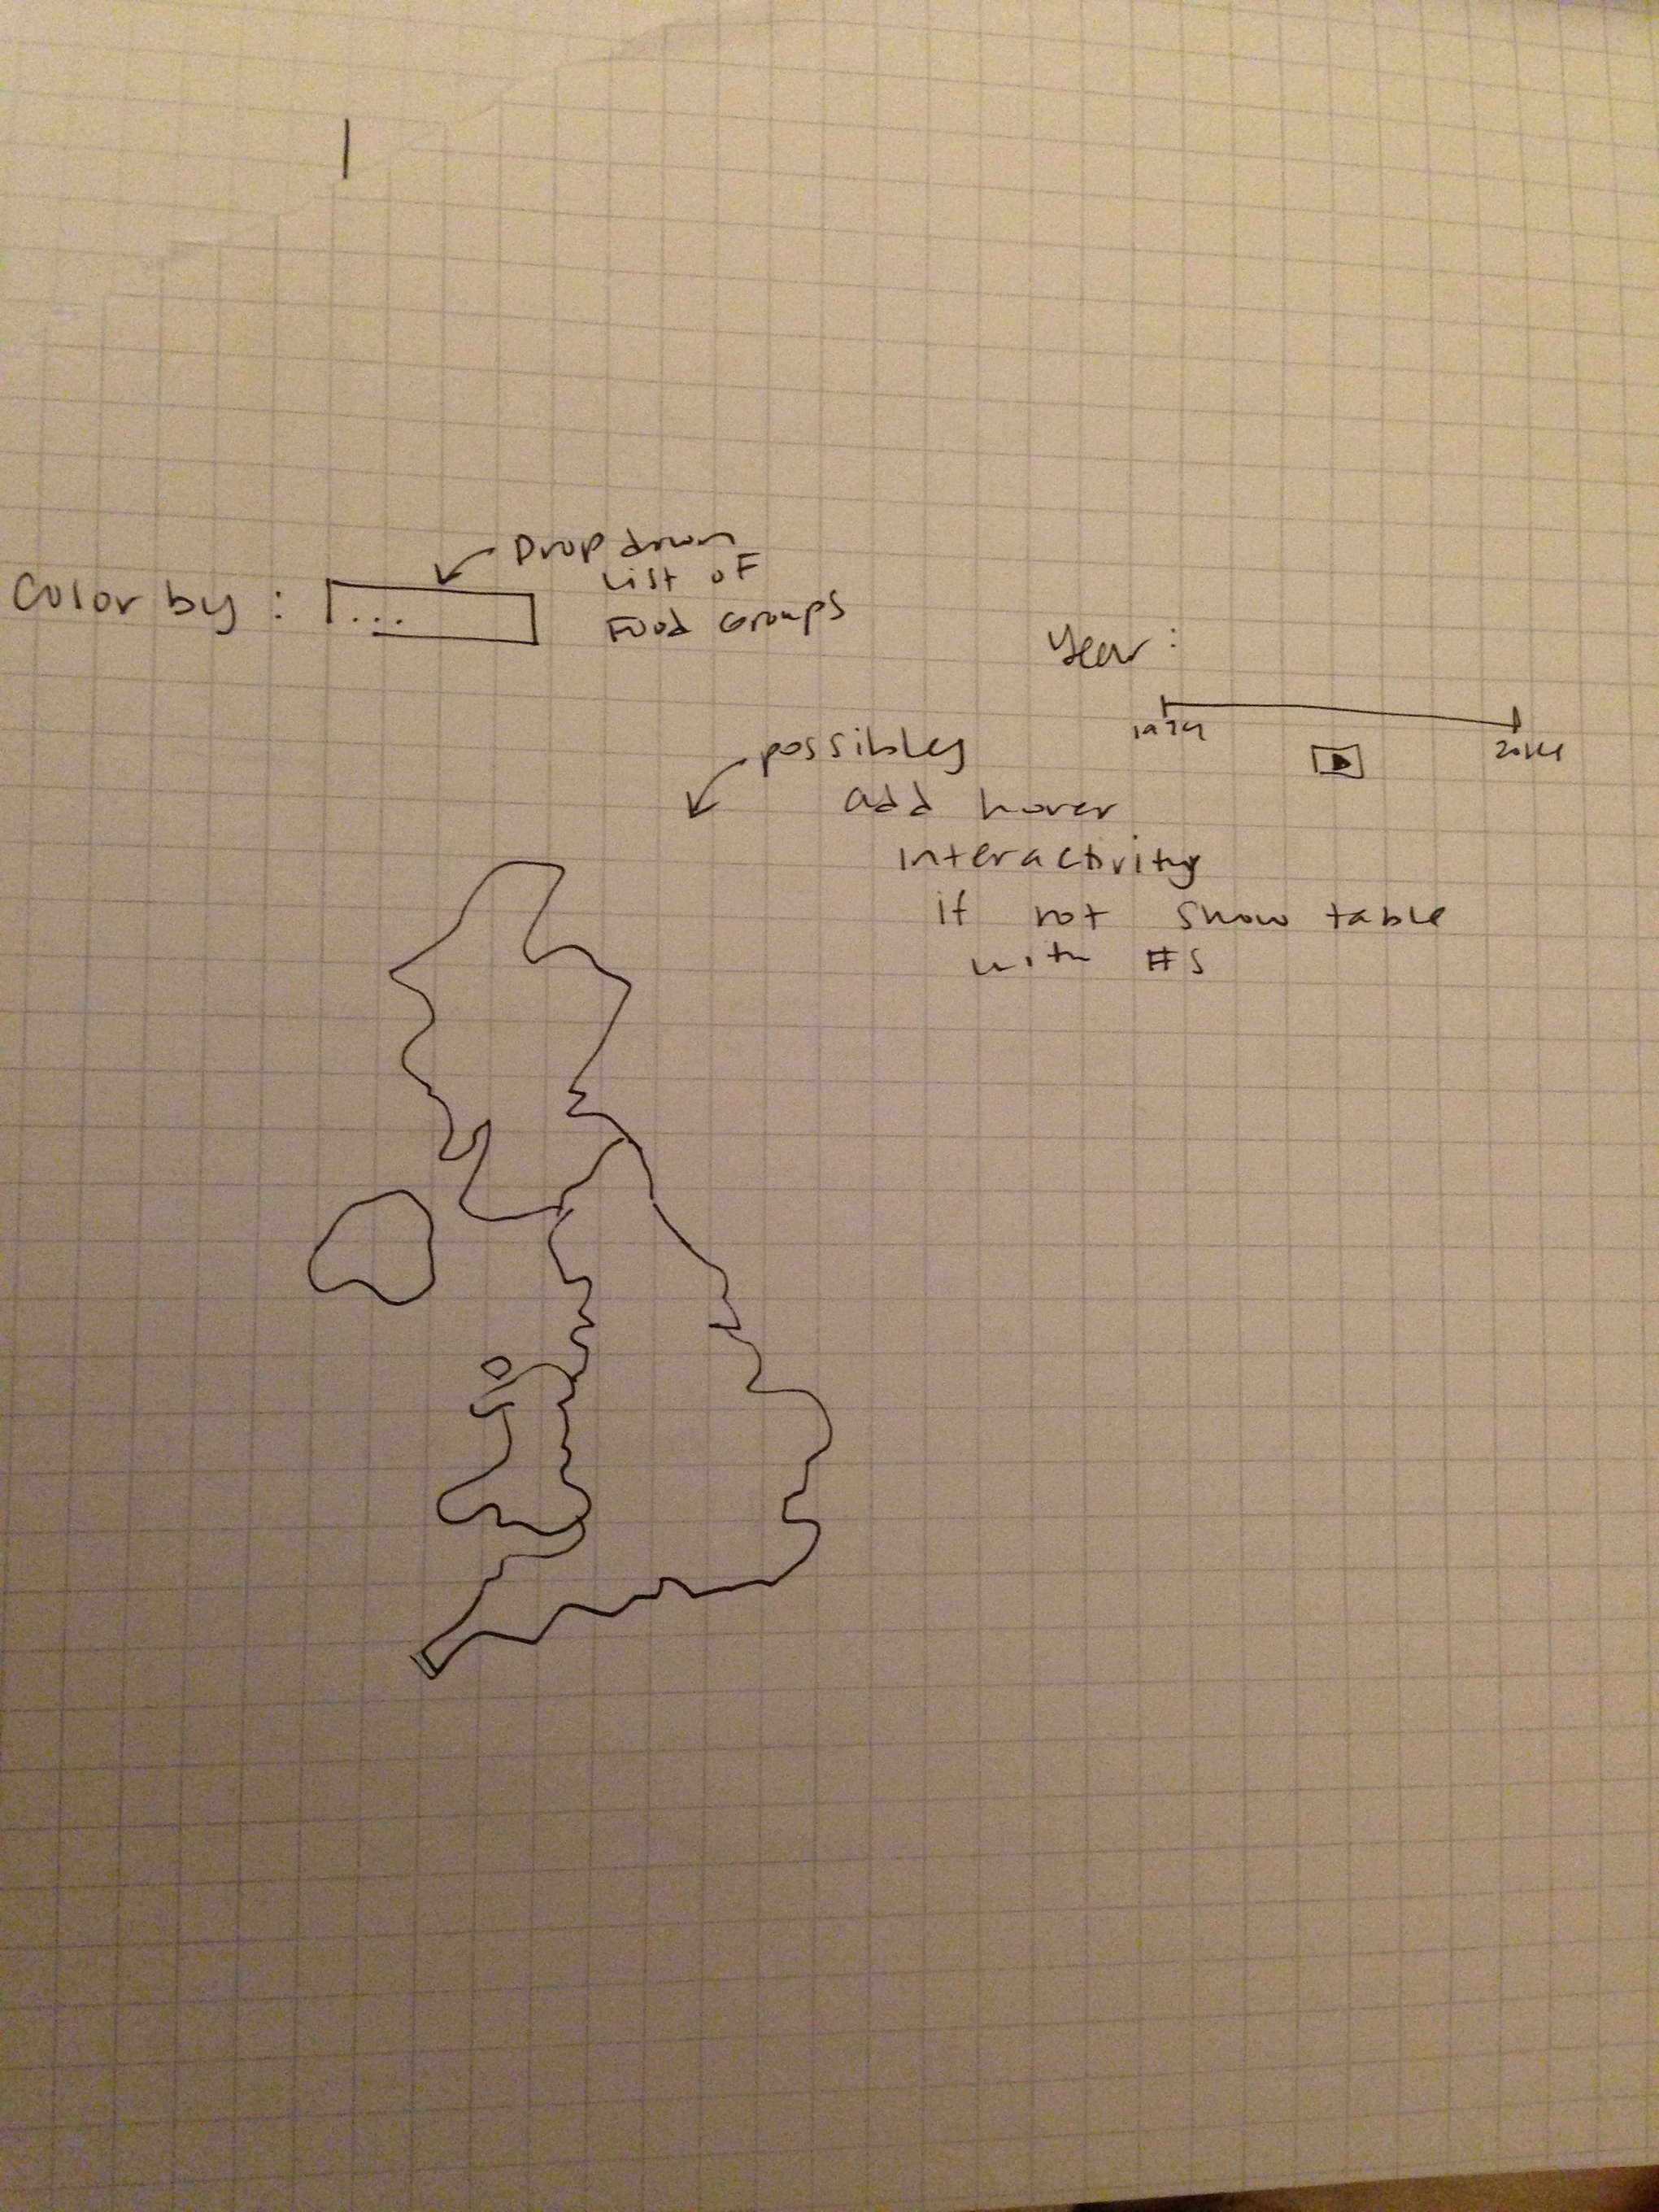 1
Color by : ...
Drop down
list of
Food Groups
Year :
1974
2014
possibly
add hover
interactivity
if not show table
with #s